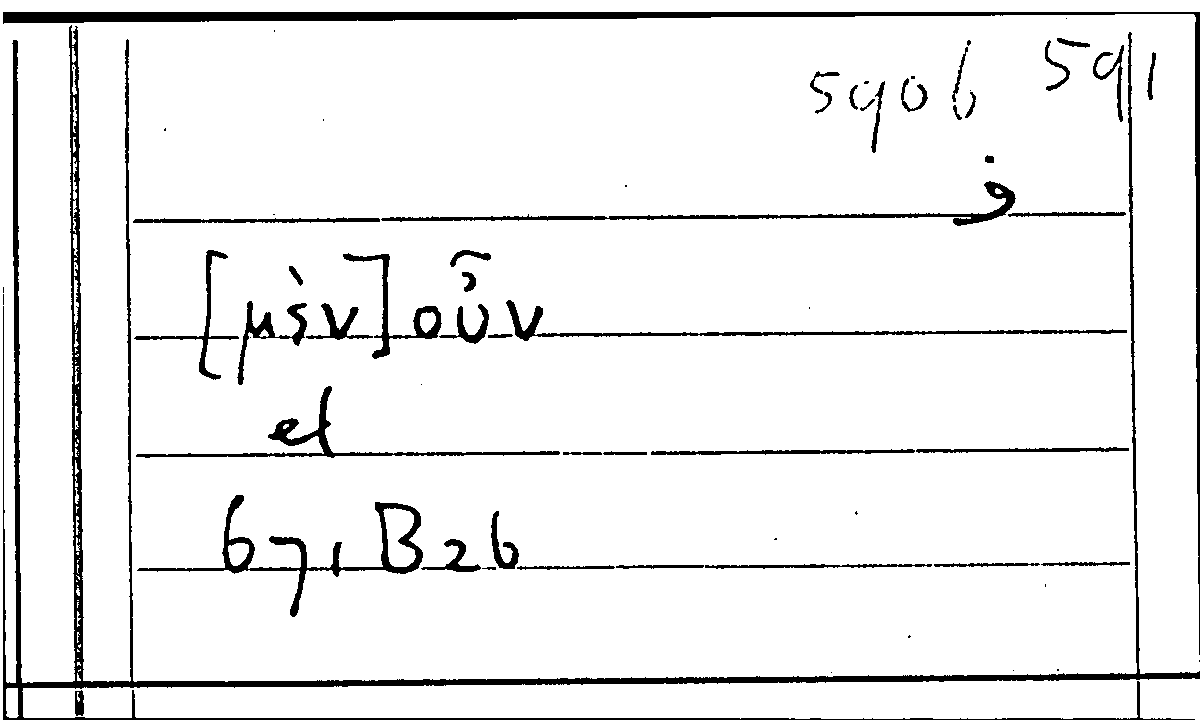 5906 591
ف
[μὲν] οὖν
el
671 B26